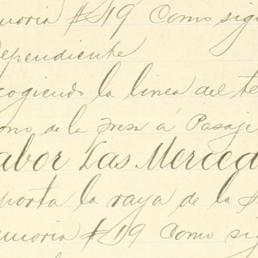 moria #19 Como sig
dependiente
cogiendo la linea del te
ono de la Fresa á Pasaje
abor Las Merced
porta la raya de la
emoria #19 Como sig